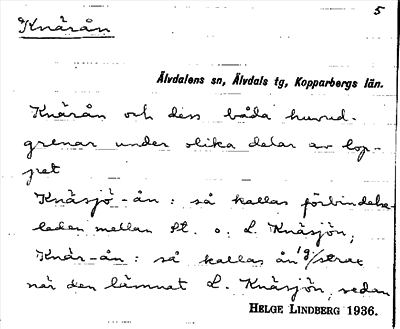 Knärån
5
Älvdalens sn, Älvdals tg, Kopparbergs län.
Knärån och dess båda huvud-
grenar under olika delar av lop-
pet
Knäsjö-ån: så kallas förbindelse-
leden mellan St. o. L. Knäsjön;
Knär-ån: så kallas ån /strax
när den lämnat L. Knäsjön, sedan
HELGE LINDBERG 1936.